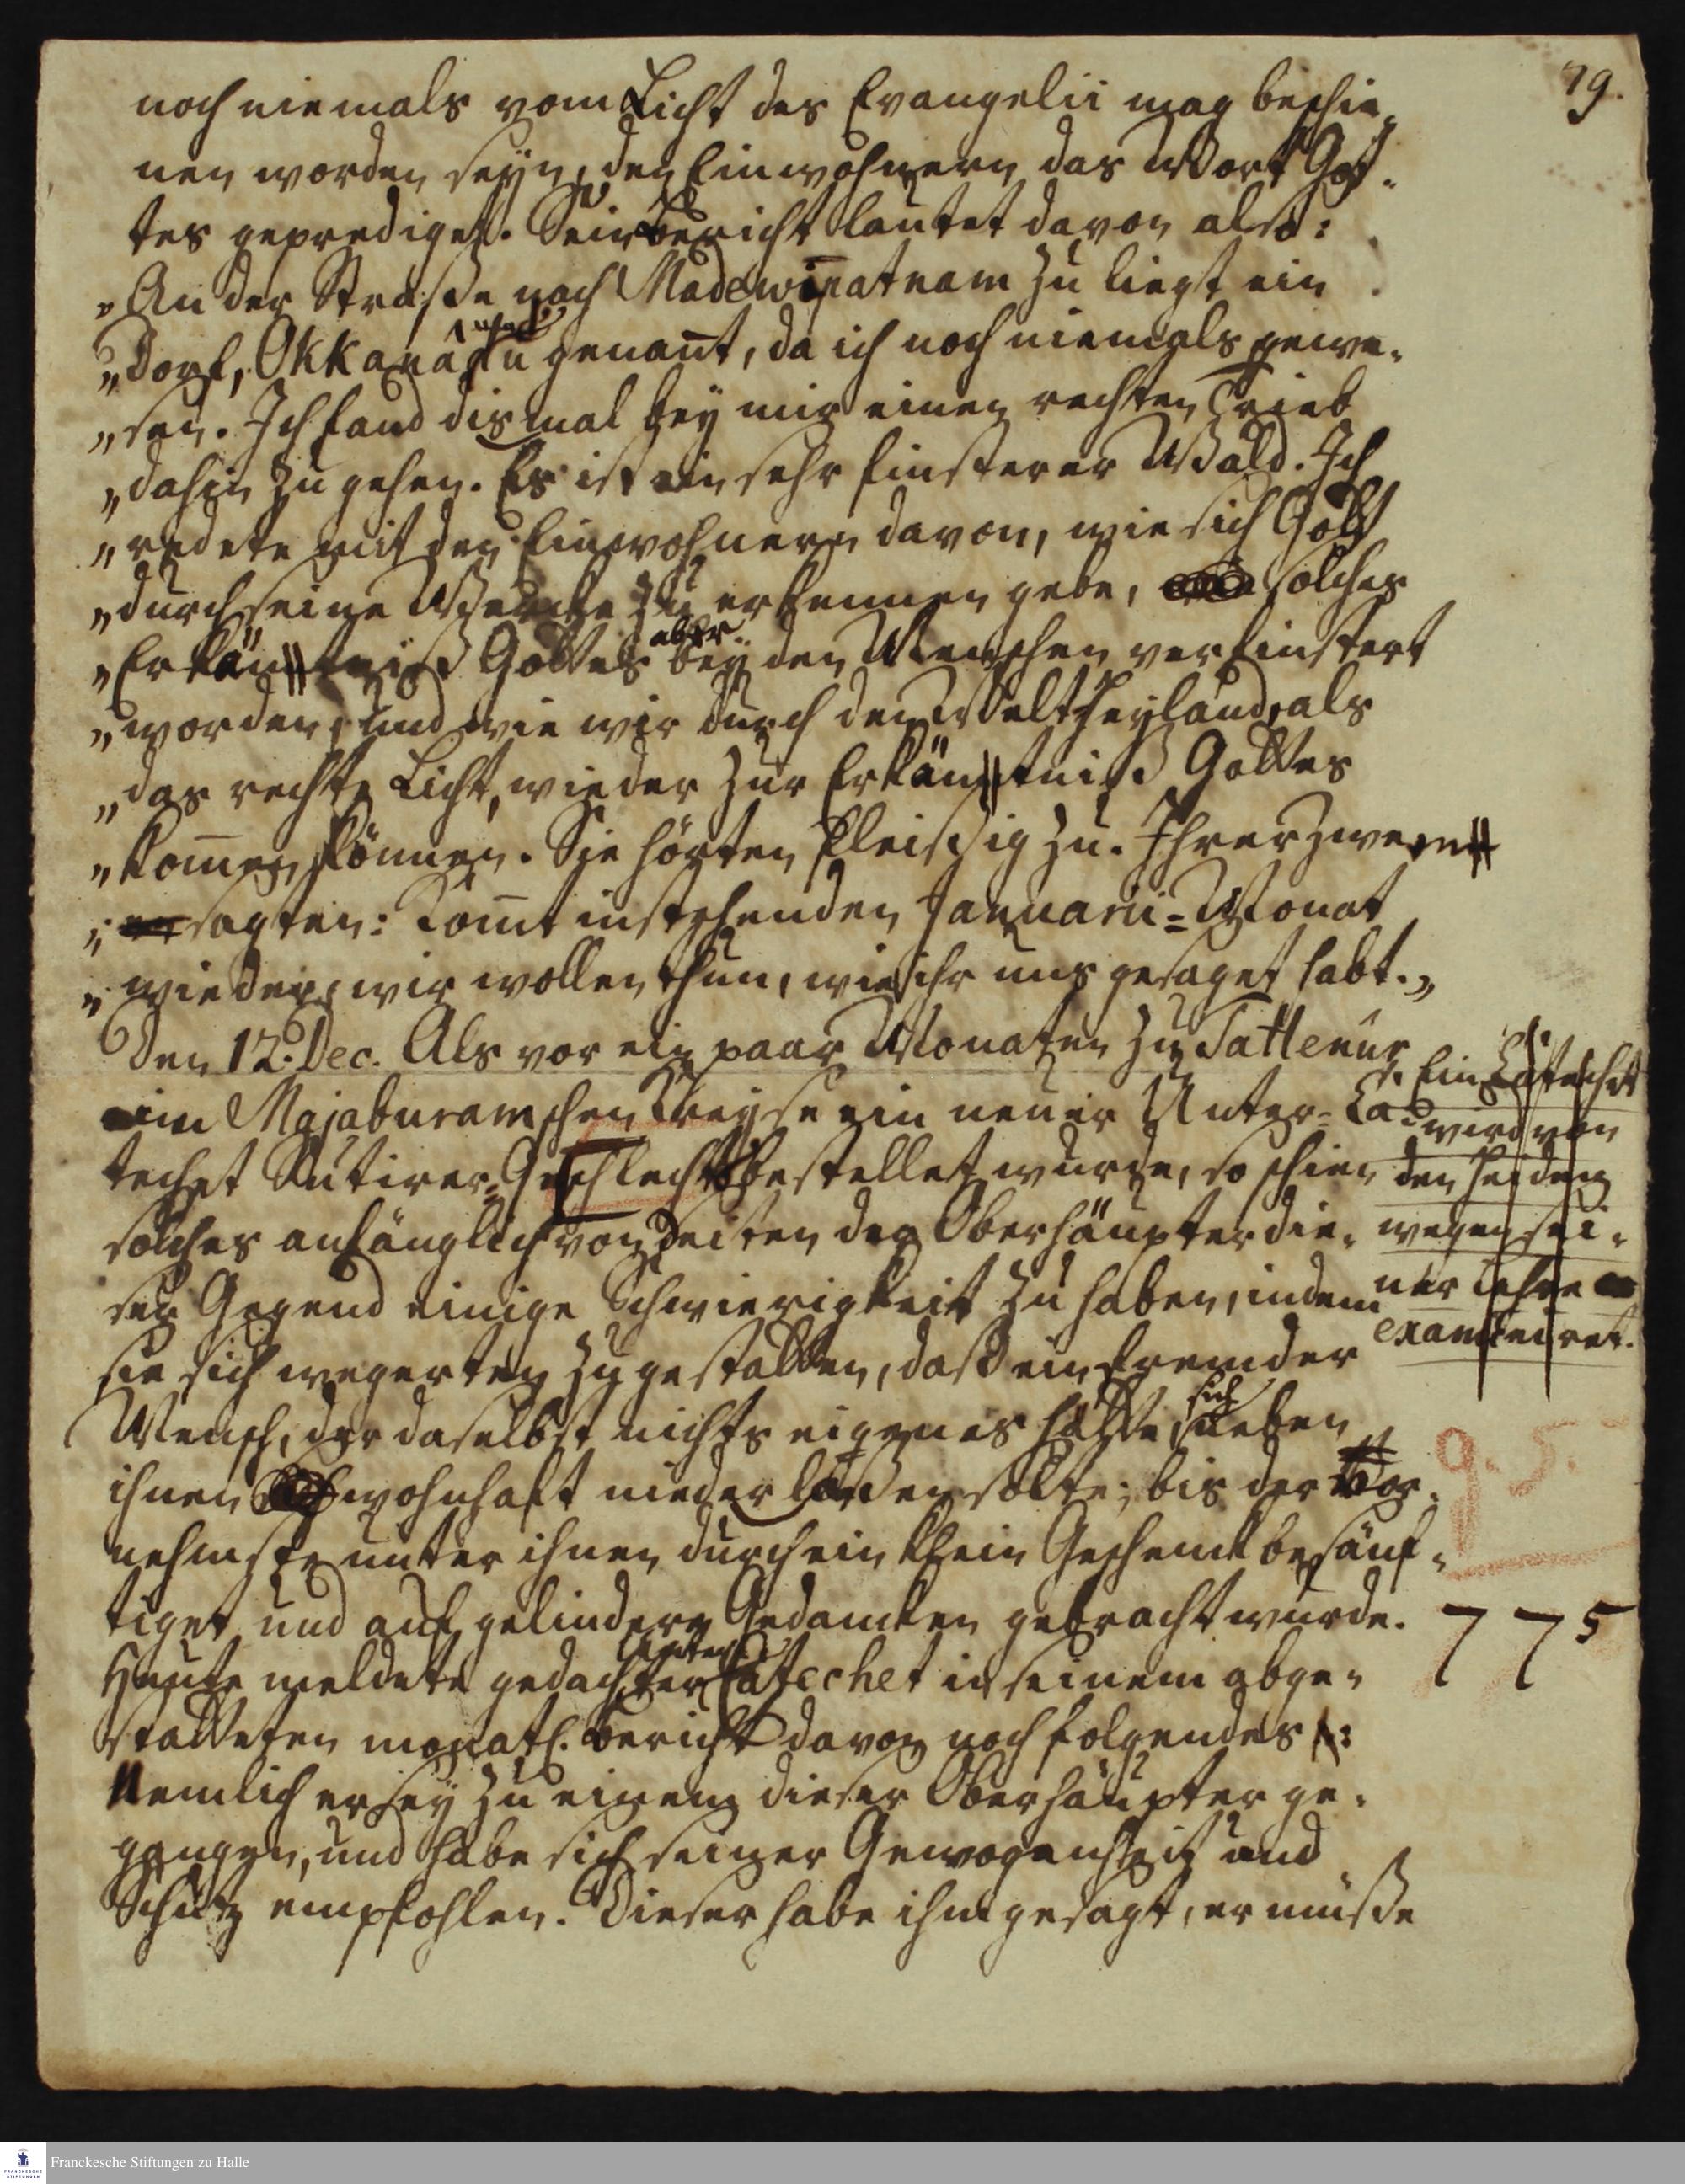 79.
noch niemals vom Licht des Evangelii mag beschie-
nen worden seyn, den Einwohnern das Wort Got-
tes geprediget. Sein Bericht lautet davon also:
„An der Straße nach Madewipatnam zu liegt ein
„Dorf, Okkanâdu genant, da ich noch niemals gewe-
„sen. Ich fand dismal bey mir einen rechten Trieb
„dahin zu gehen. Es ist ein sehr finsterer Wald. Ich
„redete mit den Einwohnern davon, wie sich Gott
„durch seine Wercke zu erkennen gebe, solches
„Erkäntniß Gottes aber bey den Menschen verfinstert
„worden, und wie wir durch den Weltheyland, als
„das rechte Licht, wieder zur Erkäntniß Gottes
„kom̄en können. Sie hörten fleissig zu. Ihrer zween
„sagten: Kom̄t instehenden Januarii-Monat
„wieder, wir wollen thun, wie ihr uns gesaget habt.„
Den 12. Dec. Als vor ein paar Monaten zu Tattenûr
im Majaburamschen Creyse ein neuer Unter-Ca-
techet Sutirer-Geschlechts bestellet wurde, so schien
solches anfänglich von Seiten der Oberhäupter die-
ser Gegend einige Schwierigkeit zu haben, indem
sie sich wegerten zu gestatten, daß ein fremder
Mensch, der daselbst nichts eigenes hätte, sich neben
ihnen wohnhaft niederlaßen solte; bis der Vor-
nehmste unter ihnen durch ein klein Geschenk besänf-
tiget und auf gelindere Gedancken gebracht wurde.
Heute meldete gedachter Unter Catechet in seinem abge-
statteten monatl. Bericht davon noch folgendes:
Nemlich er sey zu einem dieser Oberhäupter ge-
gangen, und habe sich seiner Gewogenheit und
Schutz empfohlen. Dieser habe ihm gesagt, er müsse
Ein Catechet
wird von
den Heiden
wegen sei-
ner Lehre
examiniret.
g. 5.
775
Franckesche Stiftungen zu Halle